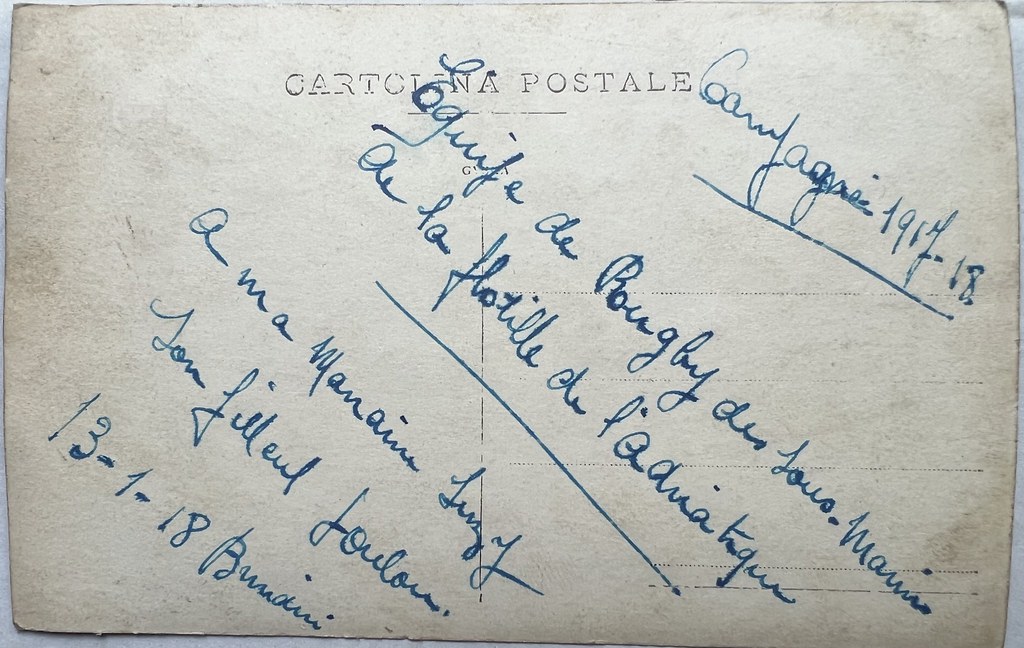 CARTOLINA POSTALE
Campagne 1917-18
Equipe de Rougby des Sous-Marins
de la flotille de l'Adriatique
A ma Marraine Suzy
Son filleul
13-1-18 Brindisi